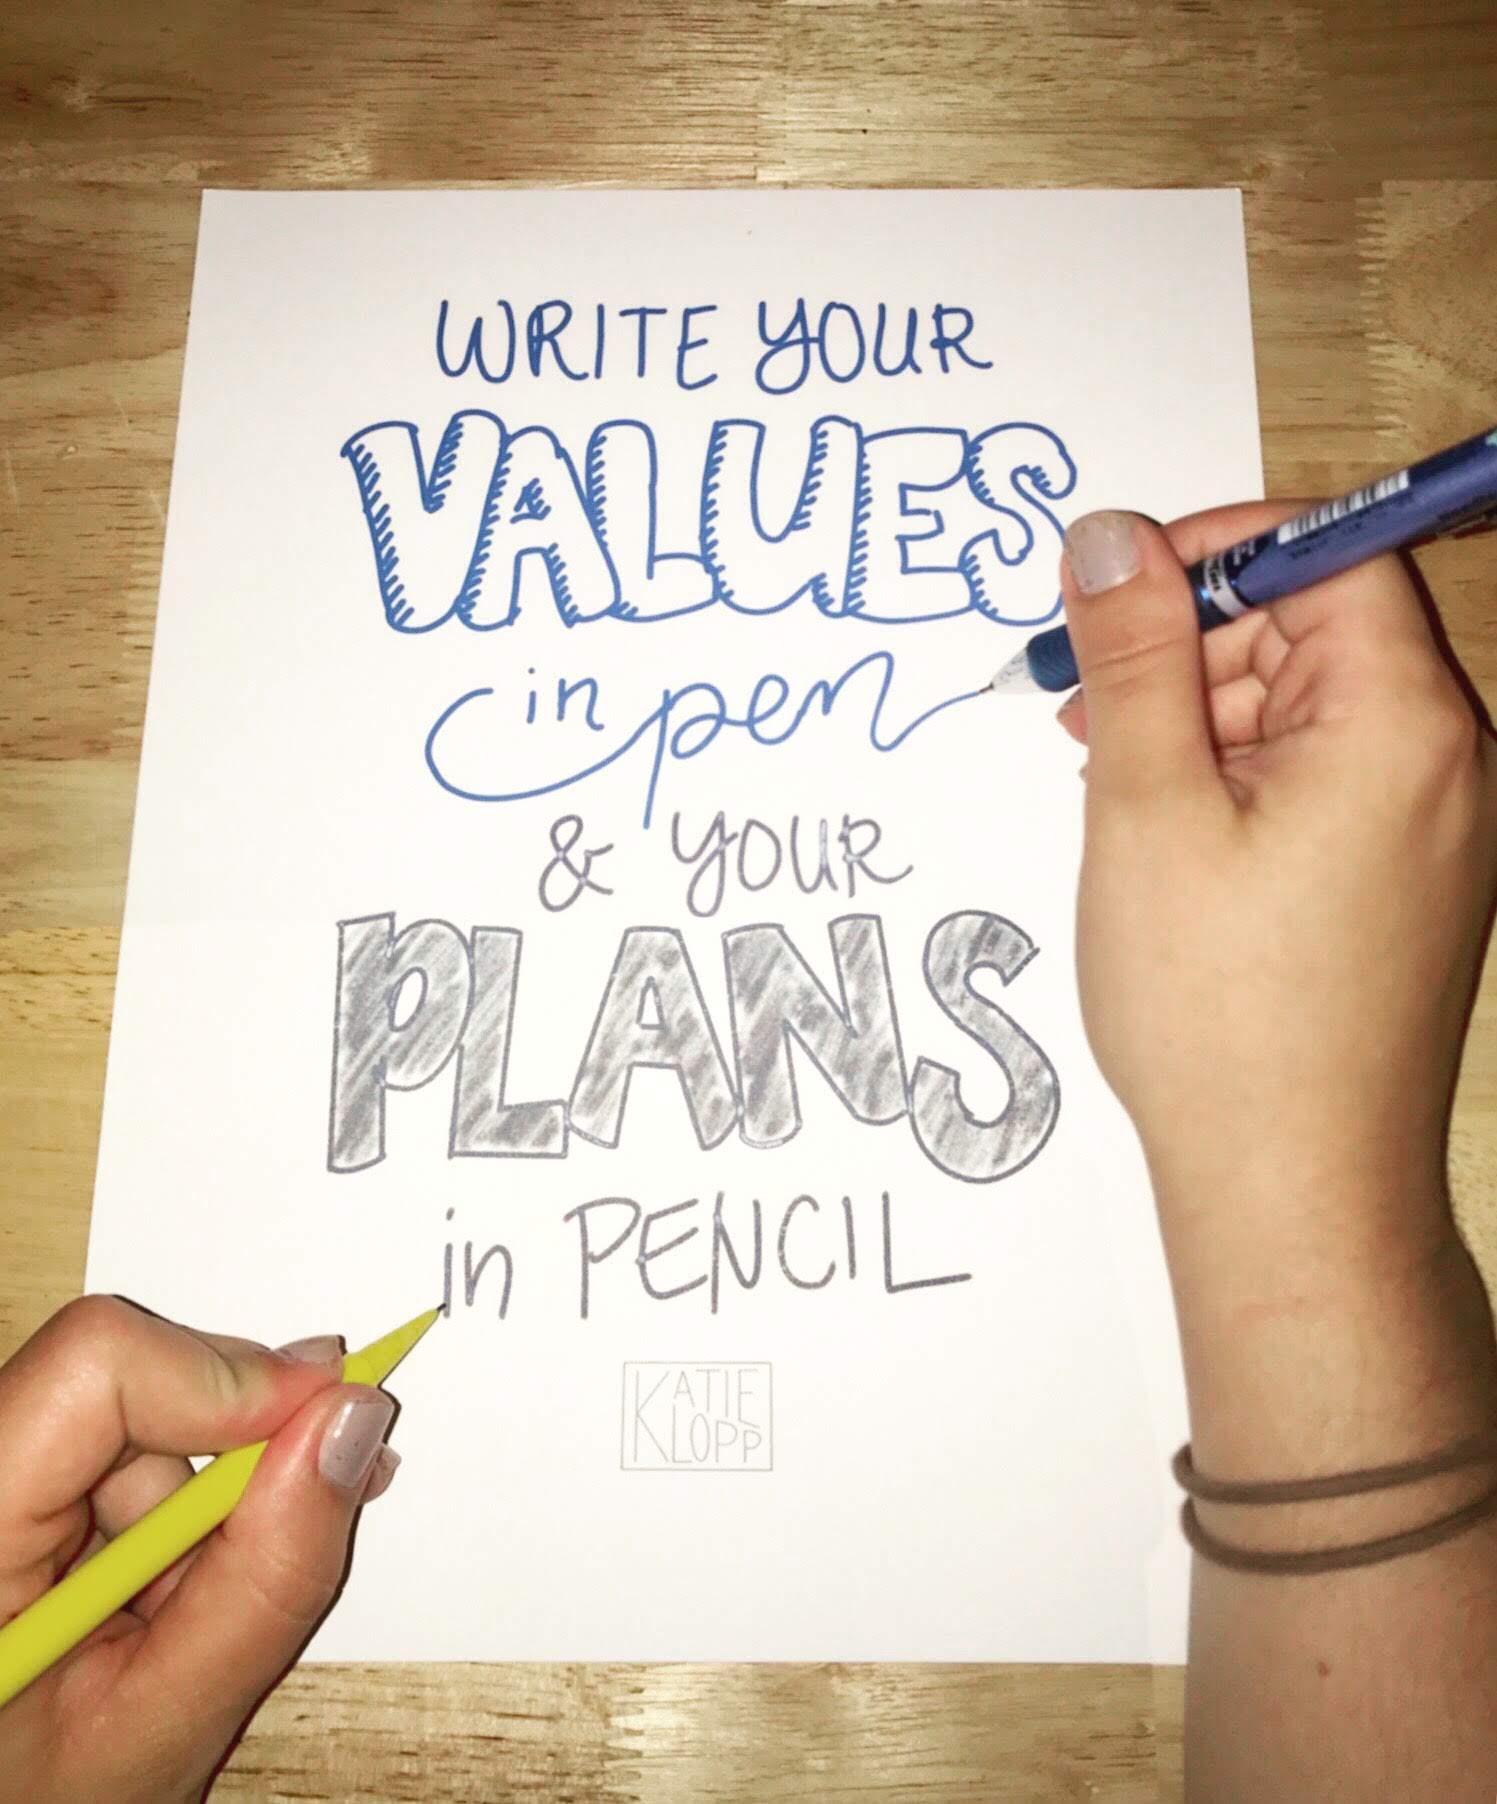 WRITE YOUR
VALUES
in pen
& YOUR
PLANS
in PENCIL
KATIE
KLOPP